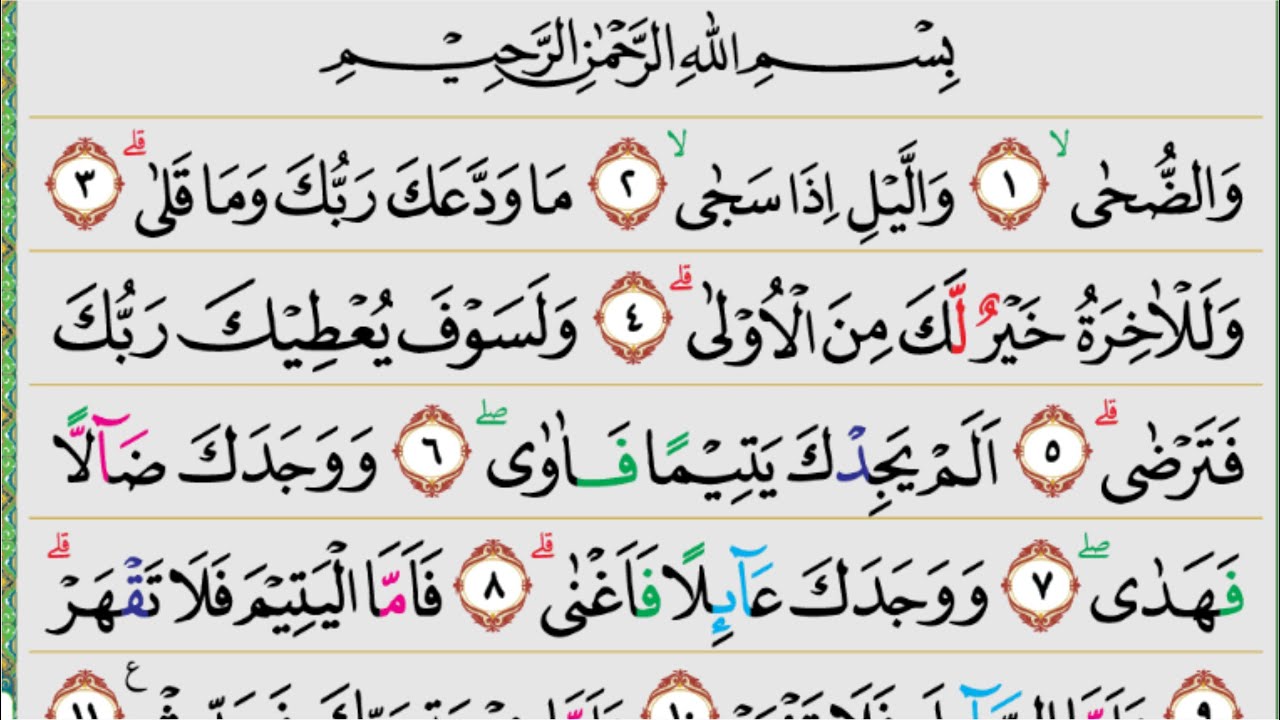 بِسْمِ اللّٰهِ الرَّحْمٰنِ الرَّحِيْمِ
وَالضُّحٰى ۙ ١ وَالَّيْلِ اِذَا سَجٰى ۙ ٢ مَا وَدَّعَكَ رَبُّكَ وَمَا قَلٰى ۗ ٣
وَلَلْاٰخِرَةُ خَيْرٌ لَّكَ مِنَ الْاُوْلٰى ۗ ٤ وَلَسَوْفَ يُعْطِيْكَ رَبُّكَ
فَتَرْضٰى ۗ ٥ اَلَمْ يَجِدْكَ يَتِيْمًا فَاٰوٰى ۖ ٦ وَوَجَدَكَ ضَاۤلًّا
فَهَدٰى ۖ ٧ وَوَجَدَكَ عَاۤىِٕلًا فَاَغْنٰى ۗ ٨ فَاَمَّا الْيَتِيْمَ فَلَا تَقْهَرْ ۗ
٩ ١٠ ١١ ع